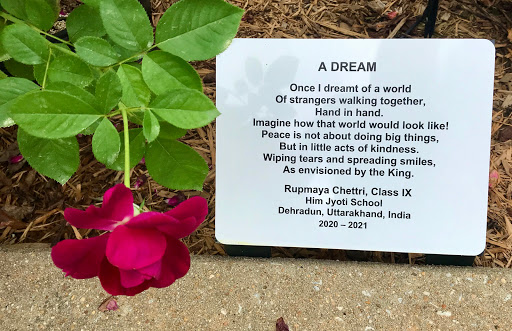 A DREAM
Once I dreamt of a world
Of strangers walking together,
Hand in hand.
Imagine how that world would look like!
Peace is not about doing big things,
But in little acts of kindness.
Wiping tears and spreading smiles,
As envisioned by the King.
Rupmaya Chettri, Class IX
Him Jyoti School
Dehradun, Uttarakhand, India
2020 – 2021